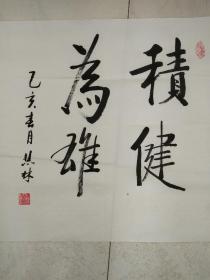 積健
為雄
乙亥春月